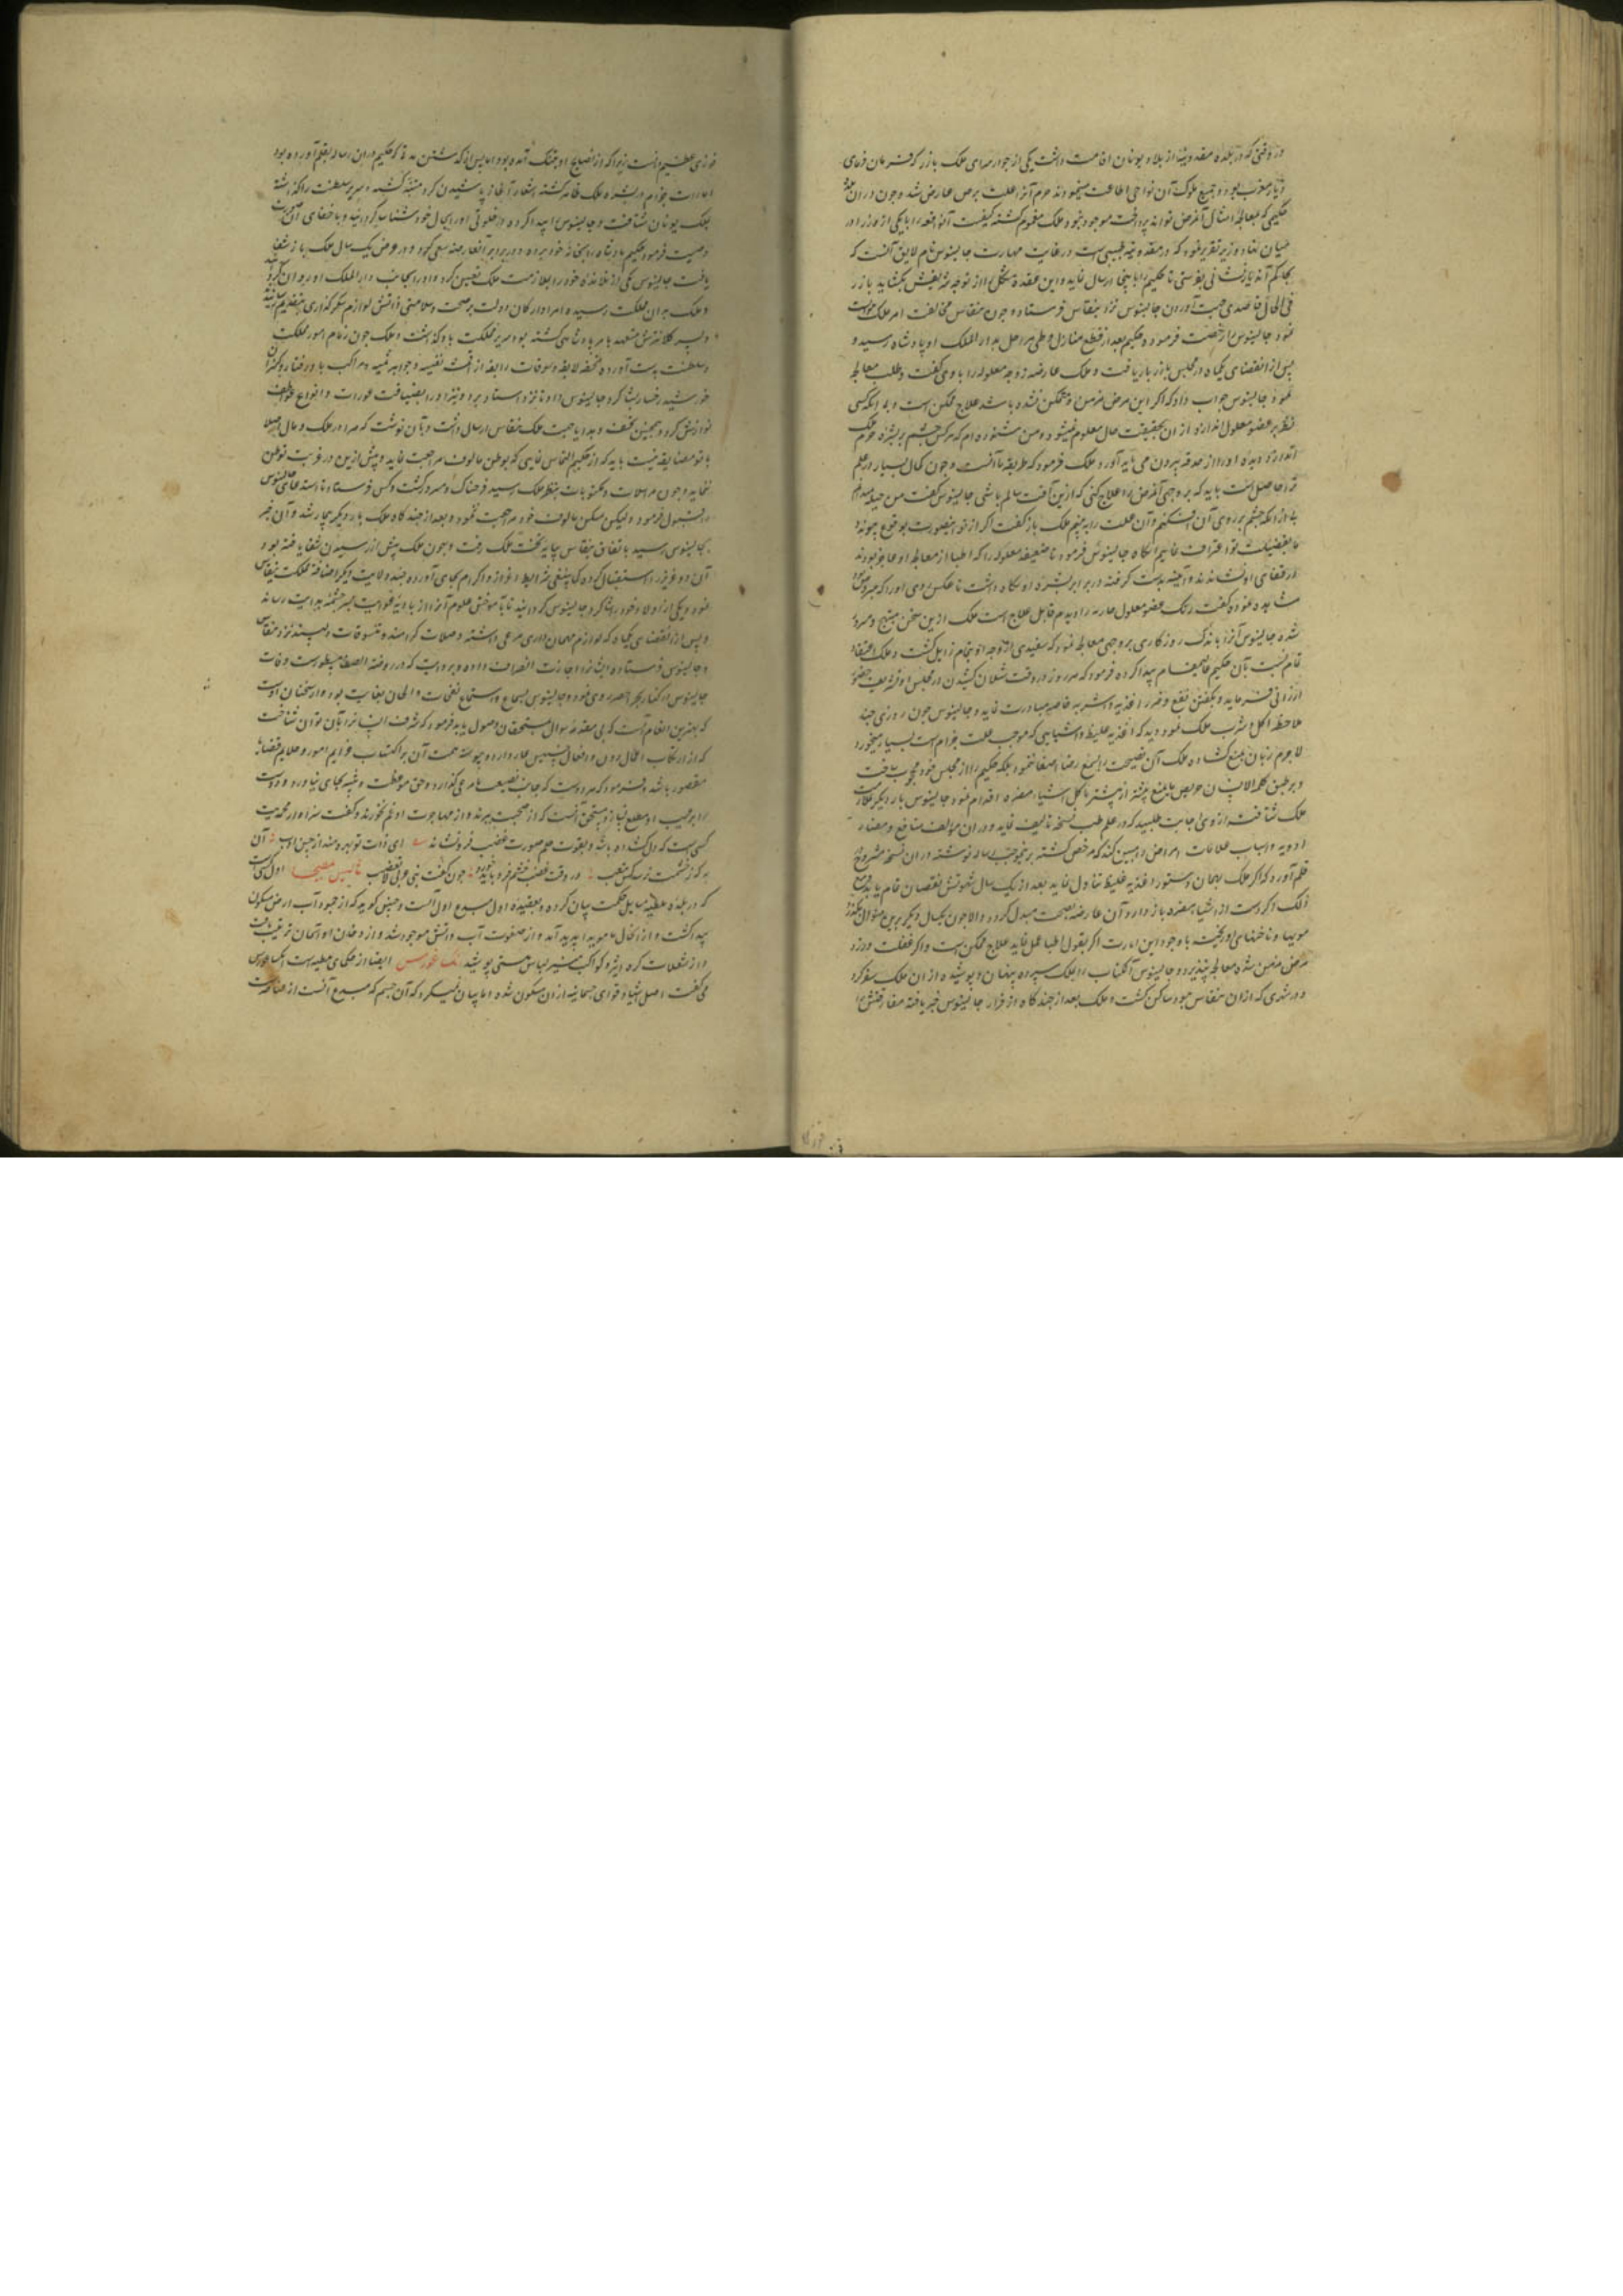 در وقتی که در بلده مقدونیه از بلاد یونان اقامت داشت یکی از جوار سرای ملک بازر که فرمان فرمای
دیار مغرب بود و جمیع ملوک آن نواحی اطاعت مینمودند حرم آنرا علت برص عارض شد و چون در آن
حکیمی که بمعالجه امثال آن مرض تواند پرداخت موجود نبود ملک مغموم گشته کیفیت آنواقعه را با یکی از وزرا در
میان نهاد وزیر تقریر نمود که در مقدونیه طبیبی است در غایت مهارت جالینوس نام لایق آنست که
بحاکم آندیار نشانی بفرستی تا حکیم را باینجا ارسال نماید و این عقده مشکل از توجه شریفش بگشاید بازر
فی الحال قاصدی جهت آوردن جالینوس نزد بنقاس فرستاد و چون بنقاس مخالفت امر ملک
نمود جالینوس را رخصت فرمود و حکیم بعد از قطع منازل و طی مراحل بدار الملک او پادشاه رسید و
پس از انقضای یکماه در مجلس بازر بار یافت و ملک عارضه زوجه معلوله را با وی گفت و طلب معالجه
نمود جالینوس جواب داد که اگر این مرض مزمن و متمکن نشده باشد علاج ممکن است و بی آنکه کسی
نظر بر عضو معلول اندازد از آن بحقیقت حال معلوم نمیشود و من شنوده ام که هر کس چشم بر بشره حرم ملک
اندازد دیده او را از حدقه بیرون می باید آورد ملک فرمود که طریقه ما آنست و چون کمال بسیار در علم
ترا حاصل است باید که بر وجهی آن مرض را علاج کنی که ازین آفت سالم باشی جالینوس گفت من حیله میدانم
بی از آنکه چشم بر روی آن افکنم و آن علت را به بینم ملک باز گفت اگر از تو اینصورت بوقوع پیوندد
ما بفضیلت تو اعتراف نماییم انگاه جالینوس فرمود تا ضعیفه معلوله را که اطبا از معالجه او عاجز بودند
در قفای او نشاندند و آیینه بدست گرفته در برابر بشره او نگاه داشت تا عکس روی او را که مبروص
مشاهده نموده گفت رنگ عضو معلول جاریه را دیدم قابل علاج است ملک ازین سخن مبتهج و مسرور
شده جالینوس آنرا باندک روزگاری بر وجهی معالجه نمود که سفیدی از وجه او بتمام زایل گشت و ملک اعتقاد
تمام نسبت بآن حکیم پیدا کرده فرمود که هر روز در وقت شیلان کشیدن در مجلس او تشریف حضور
ارزانی فرماید و بگفتن نفع و ضرر اغذیه و اشربه خاصه مبادرت نماید و جالینوس چون روزی چند
ملاحظه اکل و شرب ملک نمود دید که اغذیه غلیظ و اشیایی که موجب علت جذام است بسیار میخورد
لاجرم زبان بمنع گشاده ملک آن نصیحت را بسمع رضا اصغا ننمود بلکه حکیم را از مجلس خود محجوب ساخت
و بر طبق کلمه الانسان حریص بما منع بیشتر از پیشتر باکل اشیاء مضره اقدام نمود جالینوس بار دیگر بملازمت
ملک شتافته از وی اجابت طلبید که در علم طب نسخه تالیف نماید و در آن مؤلف منافع و مضار
ادویه و اسباب علامات امراض را مبین کند که مرخص گشته بر نموجب رساله نوشته در آن نسخه مشروح
قلم آورد که اگر ملک بهمان دستور اغذیه غلیظ تناول نماید بعد از یک سال شهوتش نقصان تمام یابد و مع
ذلک اگر دست از اشیاء مضره باز دارد آن عارضه بصحت مبدل گردد والا چون یکسال دیگر برین منوال بگذرد
مویها و ناخنهای او ریخت با وجود این امارت اگر بقول اطبا عمل نماید علاج ممکن است و اگر غفلت ورزد
مرض مزمن شده معالجه نپذیرد و جالینوس آن کتاب را بملک سپرده پنهان و پوشیده از آن ملک سفر کرد
و در شهری که از آن بنقاس بود ساکن گشت و ملک بعد از چند گاه از فرار جالینوس خبر یافته مفارقتش را
فوزی عظیم دانست زیرا که از نصایح او بتنگ آمده بود اما پس از گذشتن مدتی که حکیم در آن رساله بقلم آورده بود
امارات جذام در بشره ملک ظاهر گشته اشعار آغاز پاشیدن کرد متنبه گشته و سریر سلطنت را گذاشته
بملک یونان شتافت و جالینوس را پیدا کرده در خلوتی او را بحال خود شناسا گردانید و باخفای آن صورت
وصیت فرمود حکیم پادشاه را بخانه خود برده در برابر آنعارضه سعی کرد و در عرض یک سال ملک باز شفا
یافت جالینوس یکی از تلامذه خود را بملازمت ملک تعیین کرد و او را بجانب دار الملک او روان گردانید
و ملک بدان مملکت رسیده امرا و ارکان دولت بر صحت و سلامتی ذاتش لوازم شکرگذاری بتقدیم رسانیدند
و پسر کلانترش متعهد بامر پادشاهی گشته بود سریر مملکت باو گذاشت و ملک چون زمام امور مملکت
و سلطنت بدست آورده تحفه لایقه و تنسوقات رایقه از اقمشه نفیسه و جواهر ثمینه و مراکب باد رفتار و کنیزان
خورشید رخسار نثار کرد جالینوس داد تا نزد استاد برد و نیز او را بضیافت عورات و انواع عواطف
نوازش کرد و همچنین تحف و هدایا جهت ملک بنقاس ارسال داشت و بآن نوشت که مرا در ملک و مال اصلا
با تو مضایقه نیست باید که از حکیم التماس نمایی که بوطن مالوف مراجعت نماید و بیش ازین در غربت توطن
ننماید و چون مراسلات و مکتوبات بنظر ملک رسید فرحناک و مسرور گشت و کس فرستاد تا استدعای جالینوس
را قبول فرمود و لیکن بمسکن مالوف خود مراجعت ننمود و بعد از چند گاه ملک بار دیگر بیمار شد و آن خبر
بجالینوس رسید باتفاق بنقاس بپایه تخت ملک رفت و چون ملک پیش از رسیدن شفا یافته بود و
آن دو عزیز را استقبال کرده کما ینبغی شرایط اعزاز و اکرام بجای آورده چند ولایت دیگر اضافه مملکت بنقاس
نمود و یکی از اولاد خود را شاگرد جالینوس گردانید تا بآموختن علوم آنرا از بادیه غوایت بسر چشمه هدایت رساند
و پس از انقضای یکماه که لوازم مهمانداری مرعی داشته وصلات کرامند و تنسوقات دلپسند نزد بنقاس
و جالینوس فرستاده ایشانرا اجازت انصراف داده و بروایت که در روضة الصفا مسطورست وفات
جالینوس در کنار بحر اخضر روی نمود و جالینوس بسماع و استماع نغمات و الحان بغایت بود و از سخنان اوست
که بهترین انعام آنست که بی مقدمه سوال بمستحقان وصول یابد فرمود که شرف انسانی را بآن توان شناخت
که از ارتکاب اعمال دون و افعال خسیس عار دارد و پیوسته همت آن بر اکتساب عزایم امور و عظایم قضایا
مقصور باشد و فرمود که مرد دوست که جانب نصیحت نامرعی گذارد و حق موعظت و تنبیه بجای نیاورد و دوست
را بر عیب او مطلع نسازد مستحق آنست که از صحبت ببرند و از مهاجرت او غم نخورند و گفت سزاوار محمدت
کسی است که دل گشاده باشد و بقوت حلم صورت غضب فرو نشاند ای ذات تو بهره مند از حسن ادب آن
به که ز خشمت نرسد کس بتعب در وقت غضب خشم فرو باید خورد چون گفت نبی عربی لا تغضب ثالیس ملیطی اول کسی است
که در بلده ملطیه مسایل حکمت بیان کرده و بعقیده اول مبدع اول آبست و چنین گوید که از جمود آب ارض متکون
پیدا گشت و از انحلال هوا پدید آمد و از صفوت آب و آتش موجود شد و از دخان او آسمان ترتیب یافت
و از اشتعالات کره اثیر و کواکب منیر لباس هستی پوشید انکساغورس ایضا از حکمای ملطیه است انکساغورس
می گفت اصل اشیا و قوای جسمانیه از آن متکون شده اما بیان نمیکرد که آن جسم که مبدع آنست از عناصر است